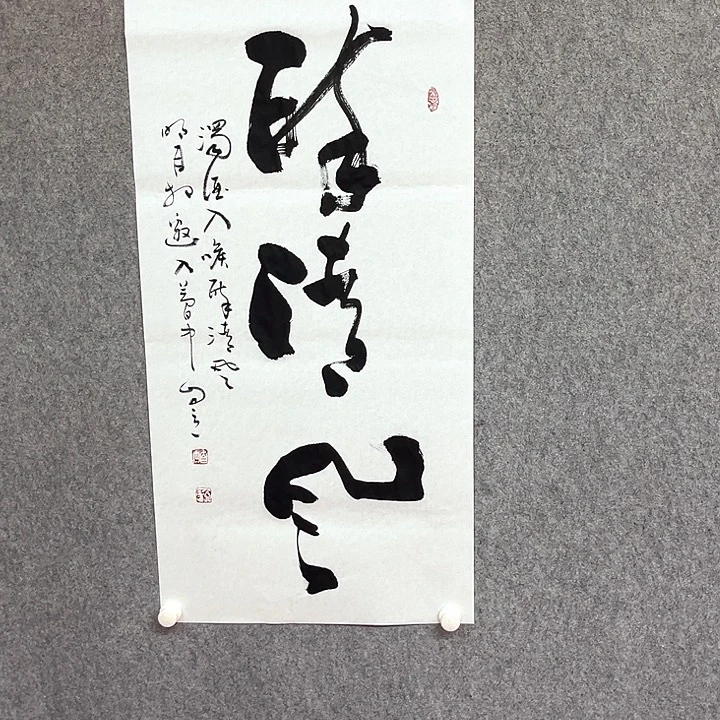 醉清风
濁酒入喉醉清风
明月相邀入夢中